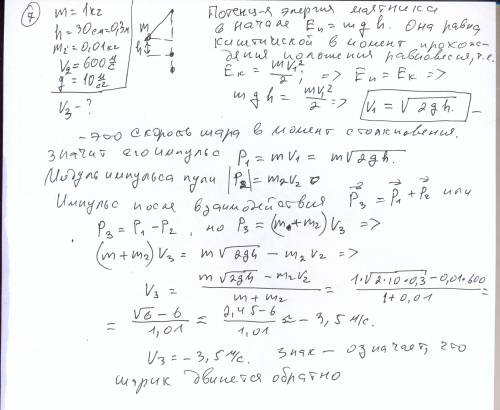 7
m = 1кг
h = 30см = 0,3м
m₂ = 0,01кг
V₂ = 600 м/с
g = 10 м/с²
V₃ - ?
m
h
Потенц-я энергия маятника
в начале Eп = mgh. Она равна
кинетической в момент прохож-
дения положения равновесия, т.е.
Eк = mV₁²/2, => Eп = Eк =>
mgh = mV₁²/2 => V₁ = √2gh. –
- это скорость шара в момент столкновения.
значит его импульс P₁ = mV₁ = m√2gh.
Модуль импульса пули |P₂| = m₂V₂
Импульс после взаимодействия P₃ = P₁ + P₂ или
P₃ = P₁ - P₂, но P₃ = (m + m₂) V₃ =>
(m + m₂) V₃ = m√2gh - m₂V₂ =>
V₃ = (m√2gh - m₂V₂)/(m + m₂) = (1·√2·10·0,3 - 0,01·600)/(1 + 0,01) =
= (√6 - 6)/1,01 ≈ (2,45 - 6)/1,01 ≈ - 3,5 м/с.
V₃ = - 3,5 м/с. знак – означает, что
шарик двинется обратно